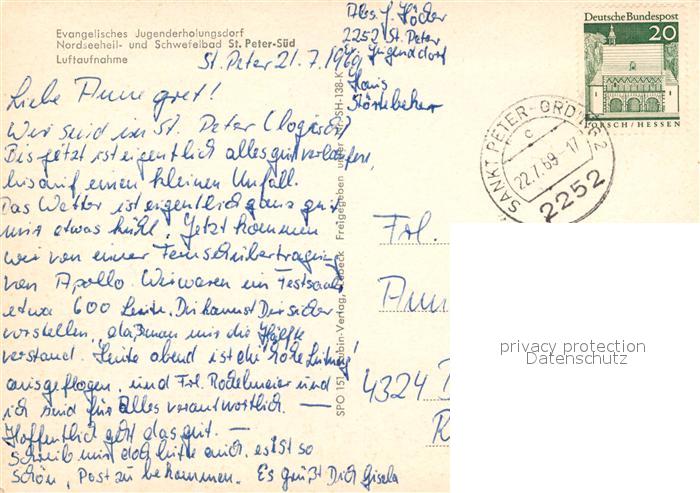 Evangelisches Jugenderholungsdorf
Nordseeheil- und Schwefelbad St. Peter-Süd
Luftaufnahme
Abs. J. Höcker
2252 St. Peter
Ev. Jugenddorf
Haus
Störtebeker
Deutsche Bundespost
20
LORSCH/HESSEN
SANKT PETER-ORDING 2
c
22.7.69-17
2252
St. Peter 21.7.1969
Liebe Annegret!
Wir sind in St. Peter (logisch)
Bis jetzt ist eigentlich alles gut verlaufen,
bis auf einen kleinen Unfall.
Das Wetter ist eigentlich ganz gut
nur etwas kühl. Jetzt kommen
wir von einer Fernsehübertragung
von Apollo. Wir waren im Festsaal
etwa 600 Leute. Du kannst Dir sicher
vorstellen, daß man nur die Hälfte
verstand. Heute abend ist die "hohe Leitung"
ausgeflogen, und Frl. Rodelmeier und
ich sind für Alles verantwortlich. —
Hoffentlich geht das gut. —
Schreib mir doch bitte auch, es ist so
schön, Post zu bekommen. Es grüßt Dich Gisela
SPO 151 Lübeck Freigegeben unter SH-138-K
Frl.
Ann
4324
privacy protection
Datenschutz